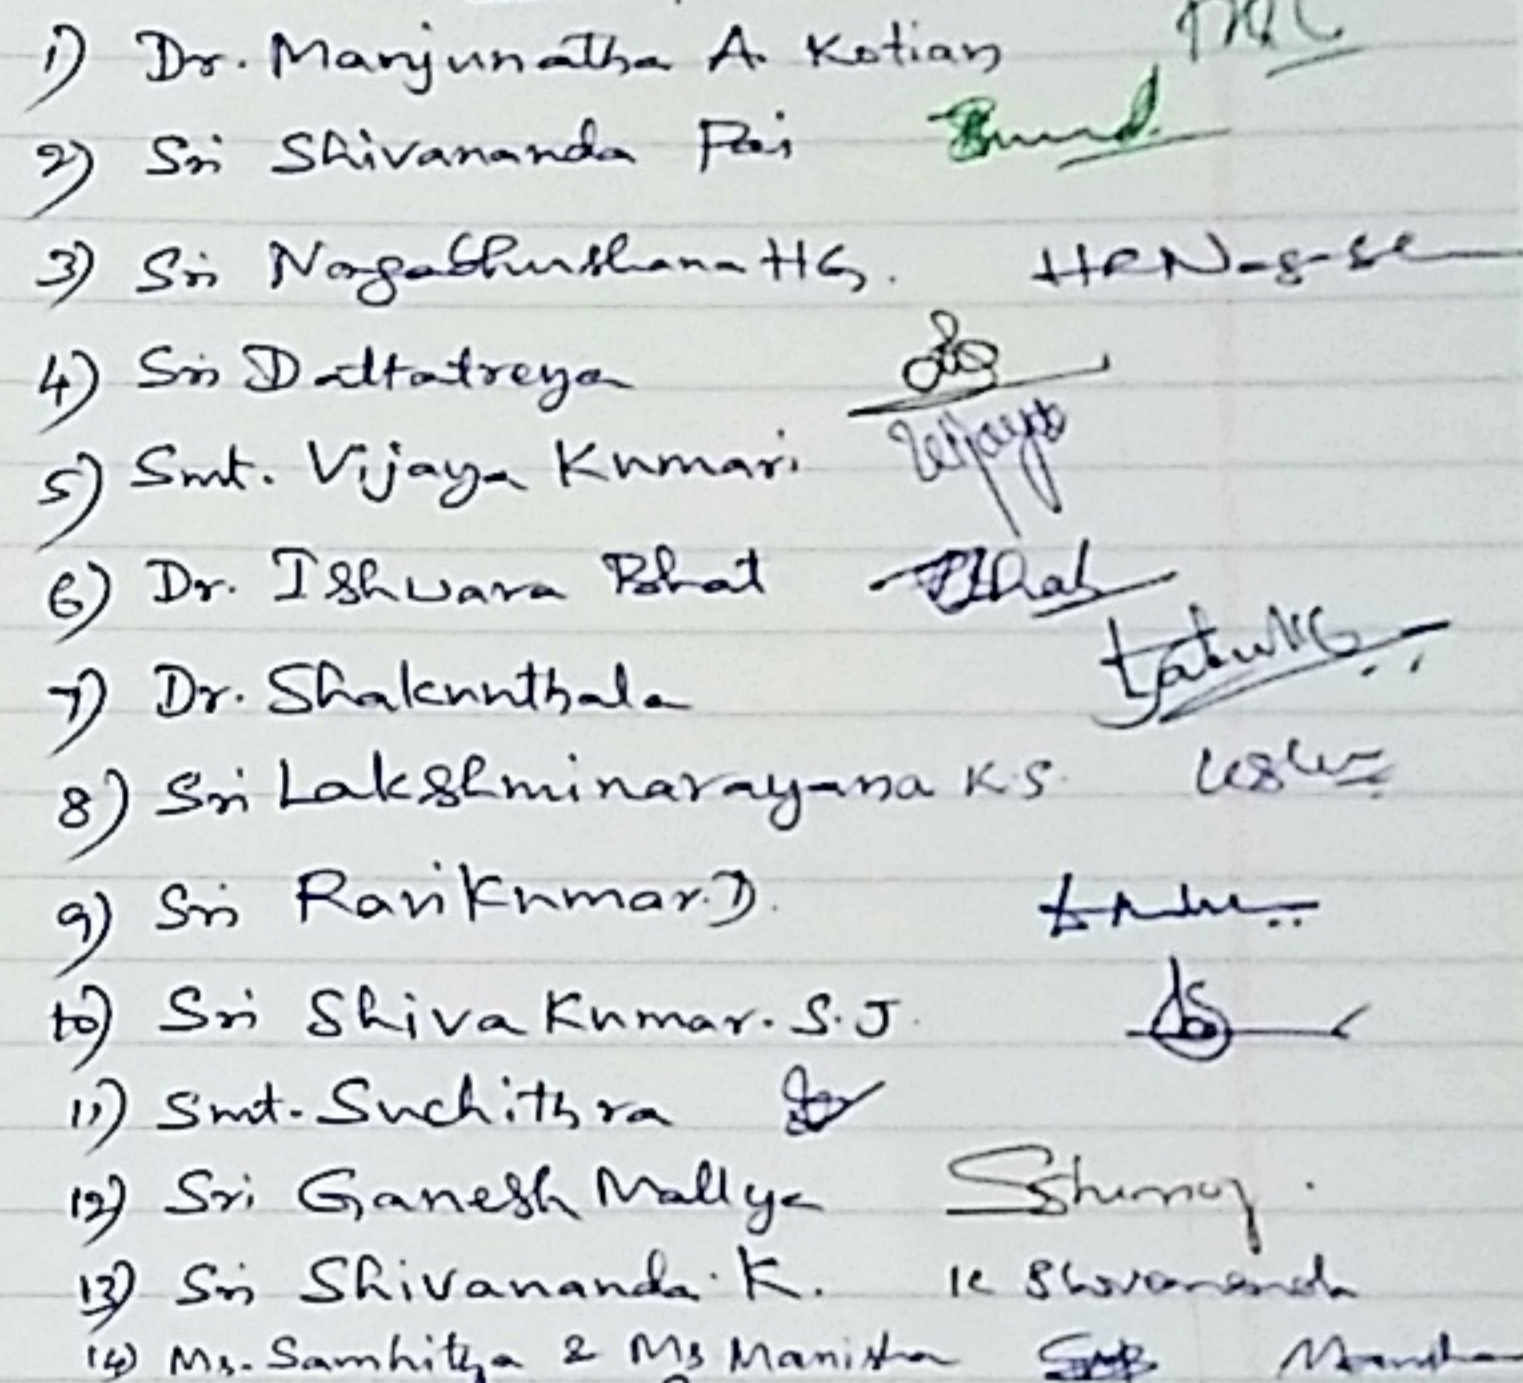 1) Dr. Manjunatha A. Kotian
2) Sri Shivananda Pai
3) Sri Nagabhushana HG.
4) Sri Dattatreya
5) Smt. Vijaya Kumari Vijaya
6) Dr. Ishwara Bhat
7) Dr. Shakunthala
8) Sri Lakshminarayana K.S.
9) Sri Ravi Kumar.D.
10) Sri Shiva Kumar. S.J.
11) Smt. Suchithra
12) Sri Ganesh Mallya
13) Sri Shivananda K. K Shivananda
14) Ms. Samhitha & Ms Manisha Manisha